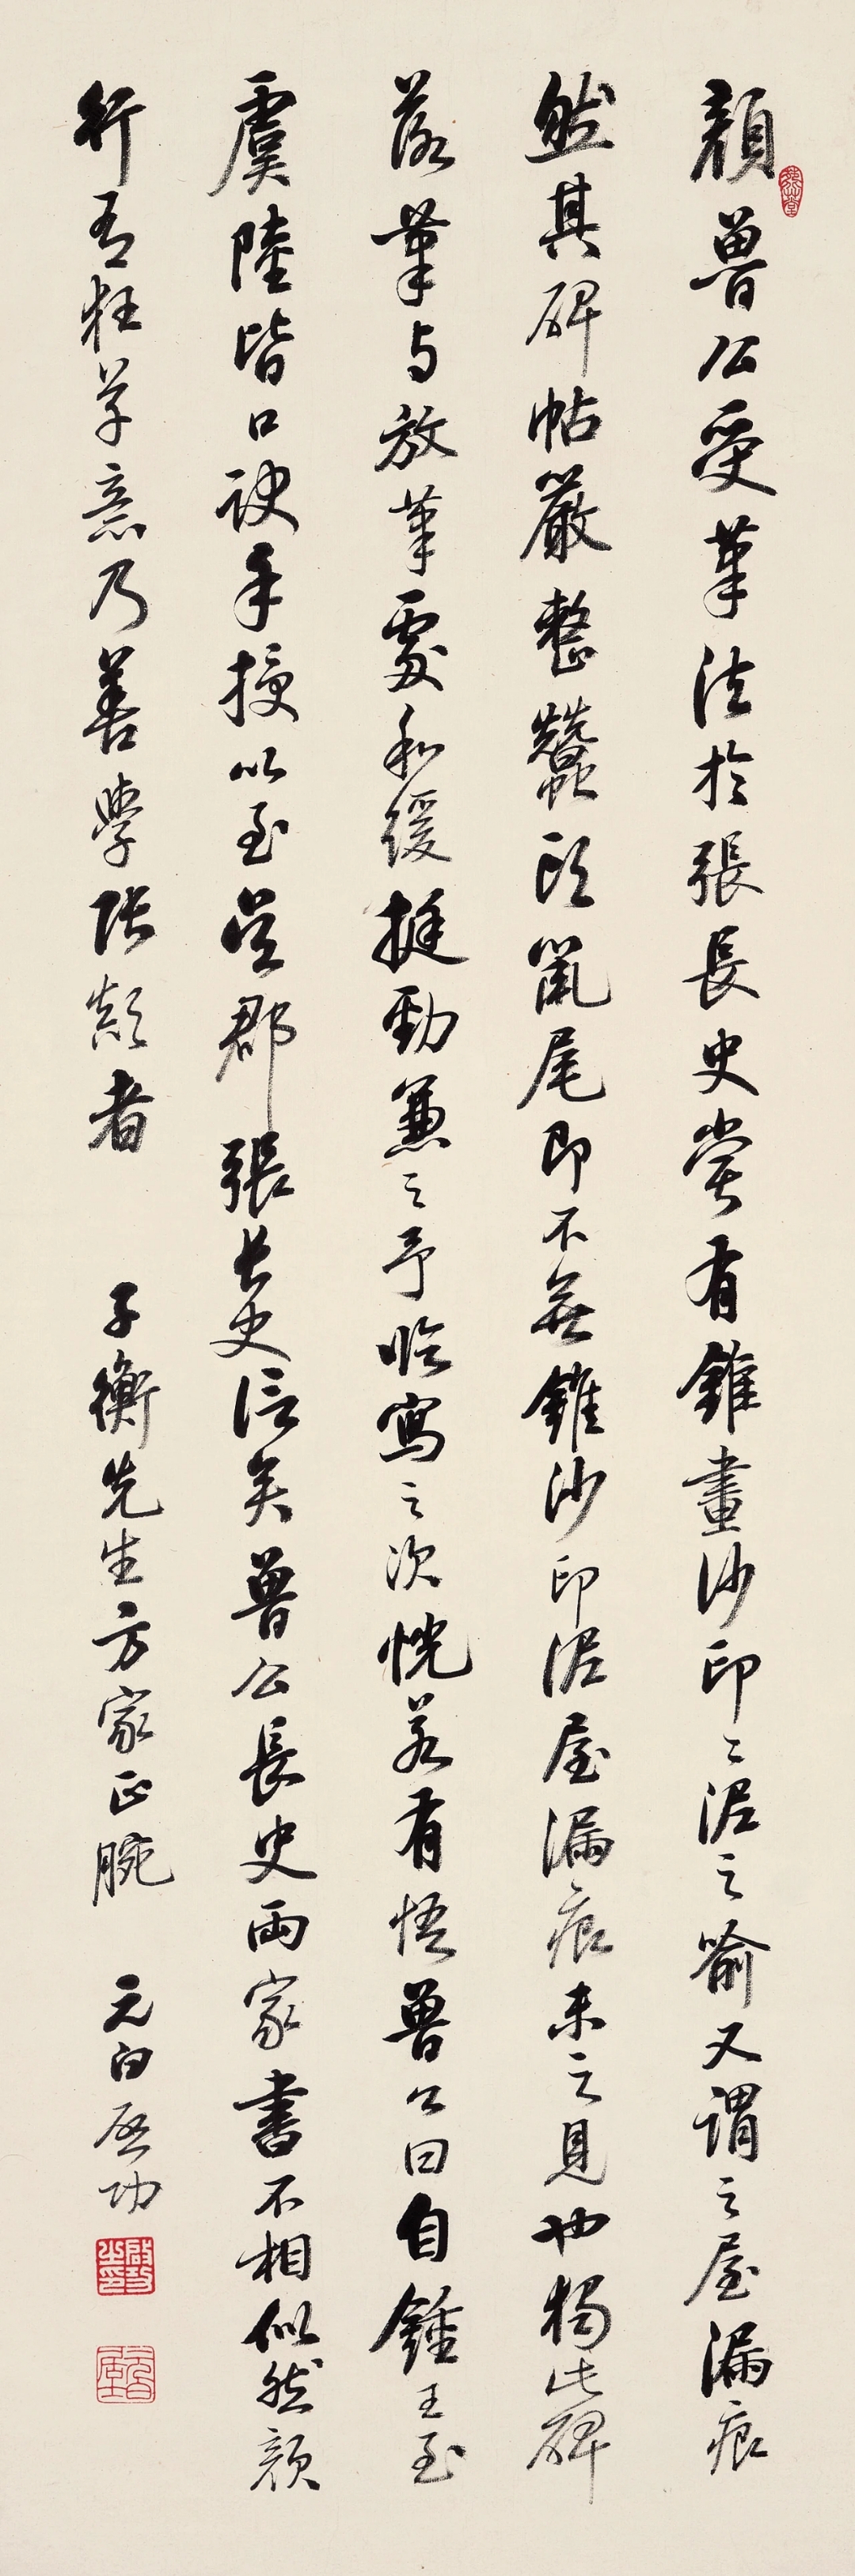 顏魯公受筆法於張長史嘗有錐畫沙印印泥之喻又謂之屋漏痕
然其碑帖嚴整蠶頭鼠尾即不無錐沙印泥屋漏痕未之見也獨此碑
落筆与放筆處和緩挺勁兼之予臨寫之次恍若有悟魯公曰自鍾王至
虞陸皆口訣手授以至吳郡張長史信矣魯公長史兩家書不相似然顏
行有狂草意乃善學張顛者
子衡先生方家正腕
元白啟功
啟功之印
元白居士